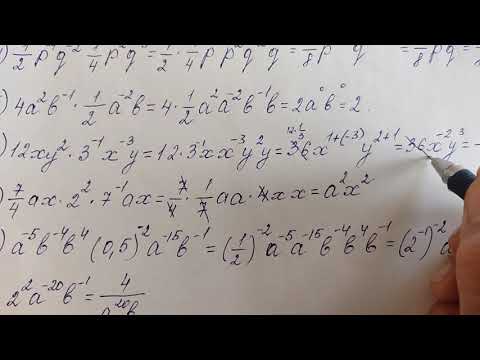 ) 1/2 p q⁻² · 1/4 p² q = 1/2 · 1/4 p p² q⁻² q = 1/8 p q = 1/8 p q
) 4a²b⁻¹ · 1/2 a⁻²b = 4 · 1/2 a²a⁻²b⁻¹b = 2a⁰b⁰ = 2.
12 · 1/3
) 12xy² · 3⁻¹x⁻³y = 12 · 3⁻¹x x⁻³y²y = 36x¹⁺⁽⁻³⁾ y²⁺¹ = 36x⁻²y³ =
) 7/4 ax · 2² · 7⁻¹ax = 7/4 · 1/7 aa · 4xx = a²x²
) a⁻⁵b⁻⁴b⁴ (0,5)⁻² a⁻¹⁵b⁻¹ = (1/2)⁻² a⁻⁵a⁻¹⁵b⁻⁴b⁴b⁻¹ = (2⁻¹)⁻² a
2²a⁻²⁰b⁻¹ = 4/a²⁰b